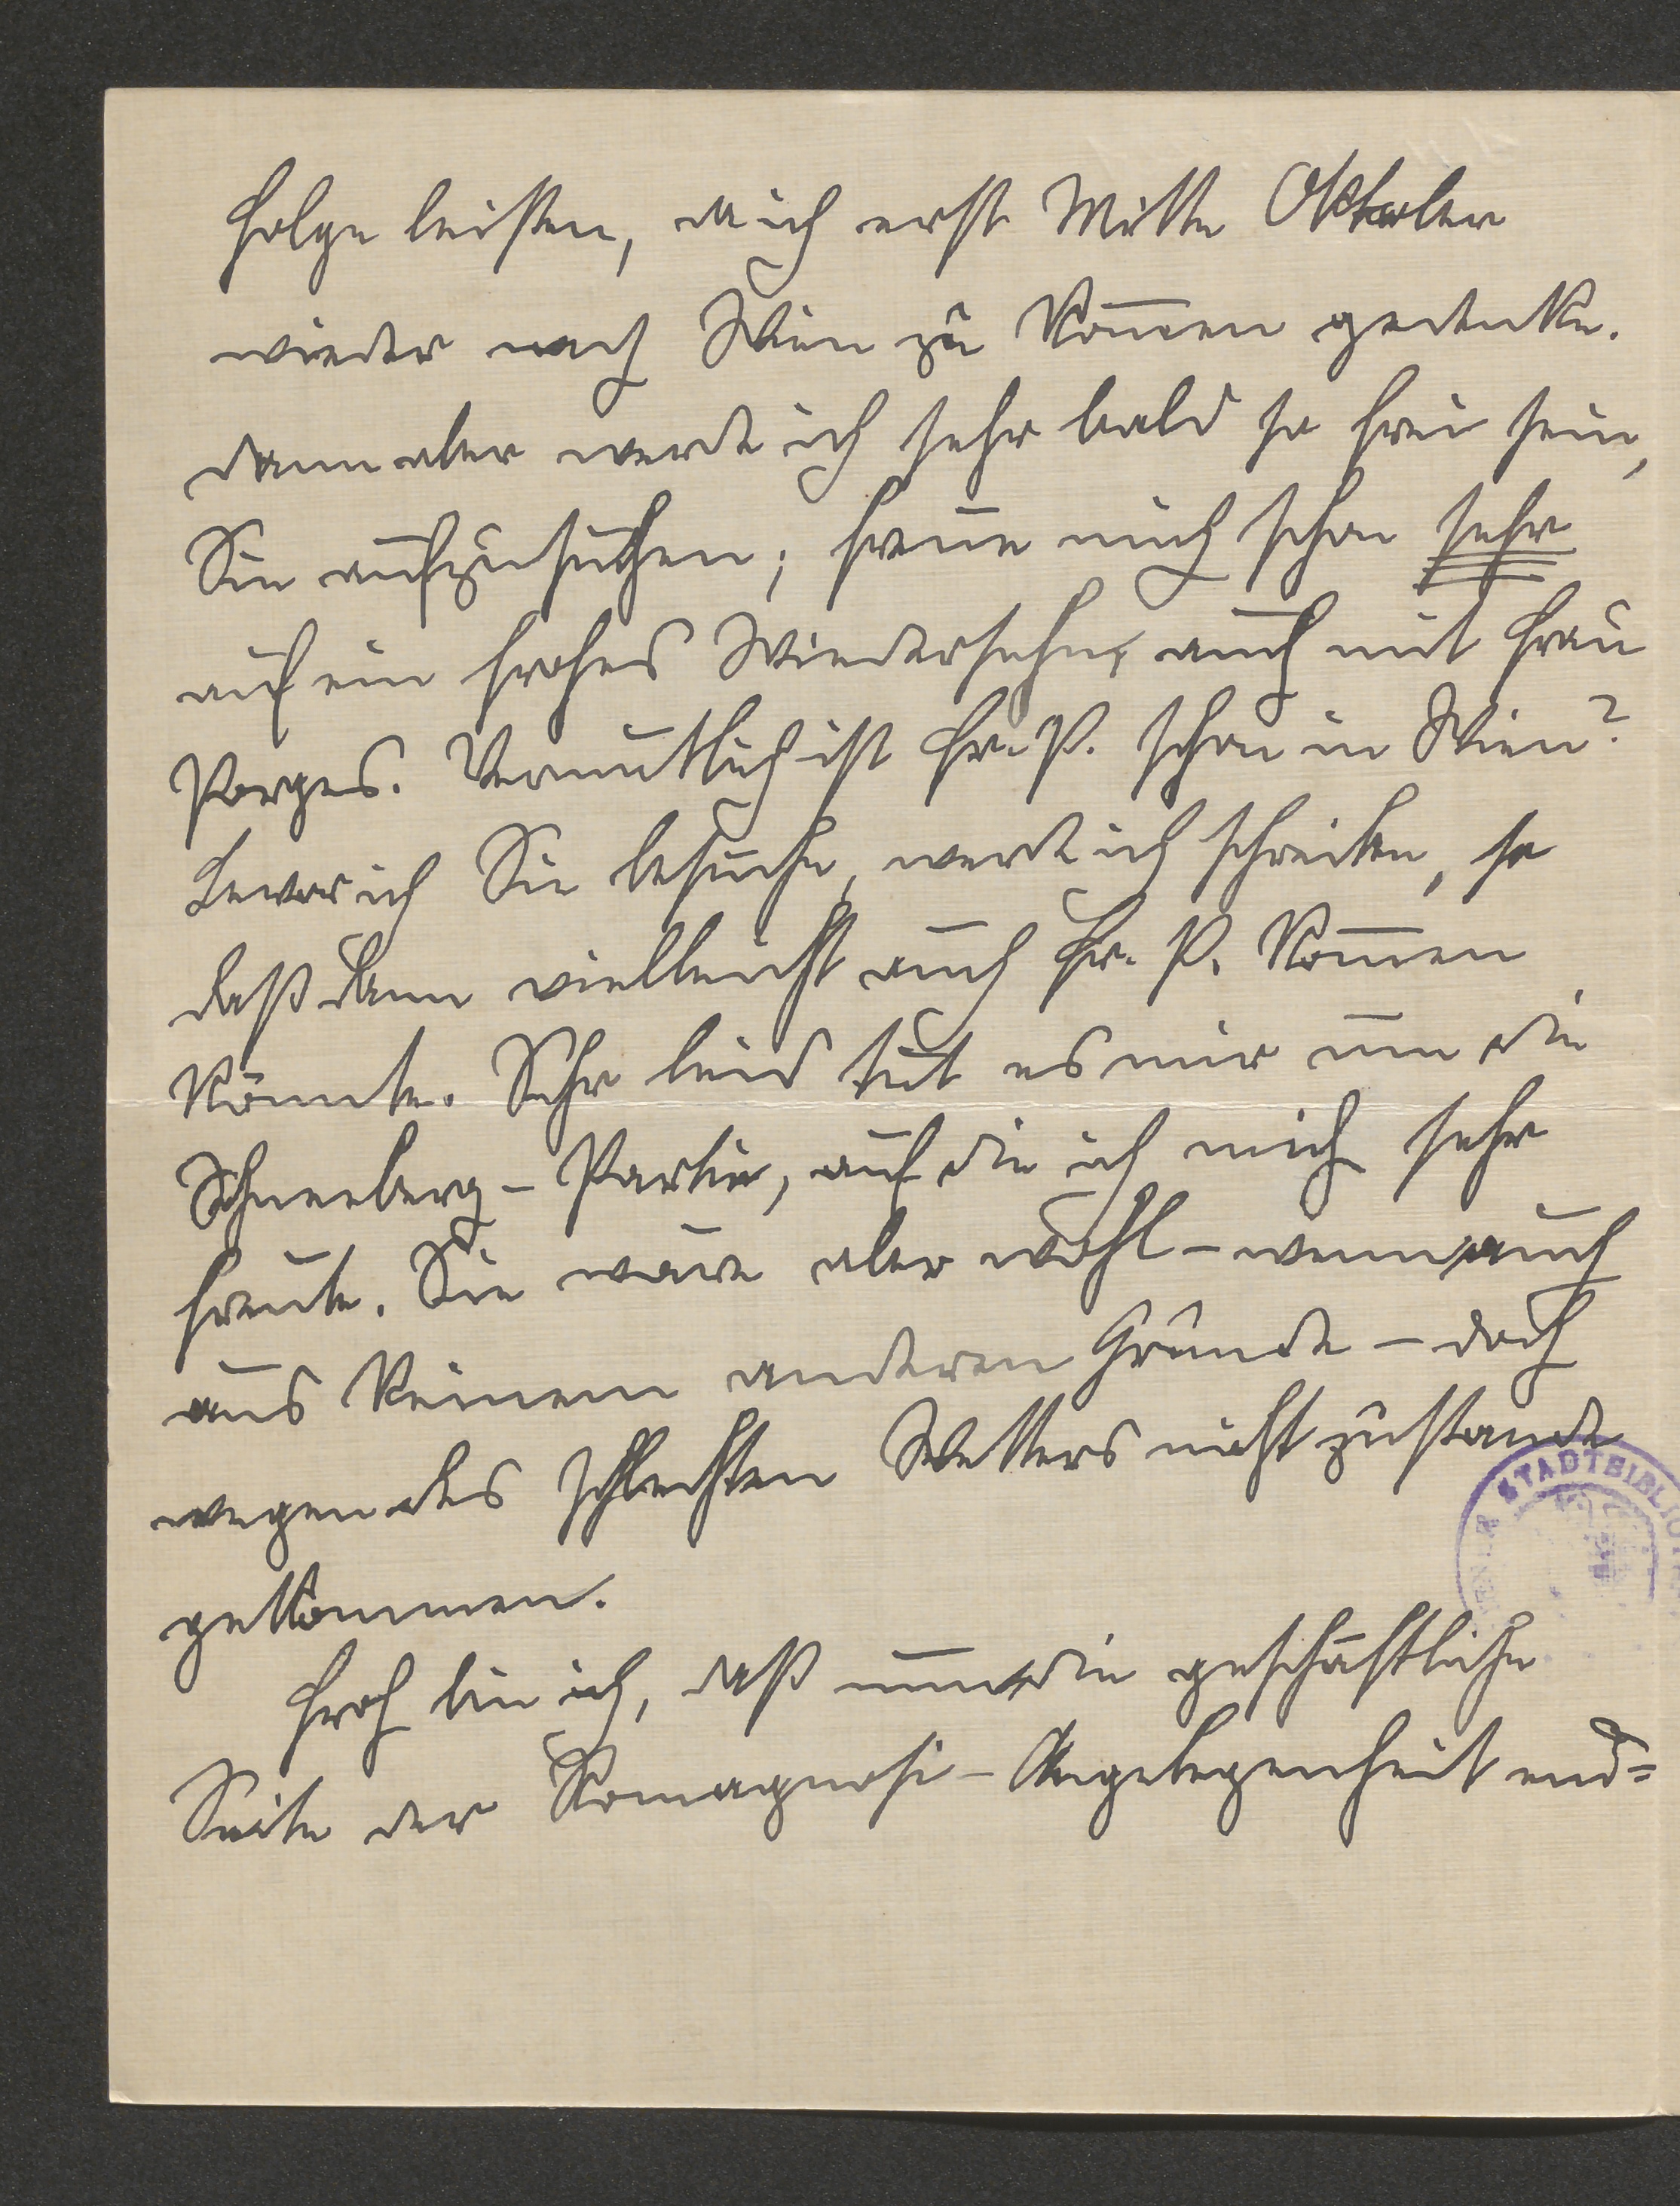 Folge leisten, da ich erst Mitte Oktober
wieder nach Wien zu kom̅en gedenke.
Dann aber werde ich sehr bald so frei sein,
Sie aufzusuchen; freue mich schon sehr
auf ein frohes Wiedersehn, auch mit Frau
Porges. Vermutlich ist Fr. P. schon in Wien?
Bevor ich Sie besuche, werde ich schreiben, so
daß dann vielleicht auch Fr. P. kom̅en
könnte. Sehr leid tut es mir um die
Schneeberg-Partie, auf die ich mich sehr
freute. Sie wäre aber wohl – wenn auch
aus keinem anderen Grunde – doch
wegen des schlechten Wetters nicht zustande
gekommen.
Froh bin ich, daß nun die geschäftliche
Seite der Romagnosi-Angelegenheit end=
STADTBIBLIOT